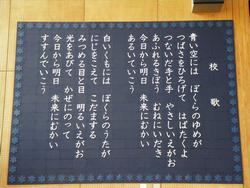 校歌
青い空には ぼくらのゆめが
つばさをひろげて はばたくよ
つないだ手と手 やさしいえがお
あふれるきぼう むねにいだき
今日から明日 未来にむかい
あるいていこう
白いくもには ぼくらのうたが
にじをこえて こだまする
みつめる目と目 明るいえがお
光をあびて かぜにのって
今日から明日 未来にむかい
すすんでいこう